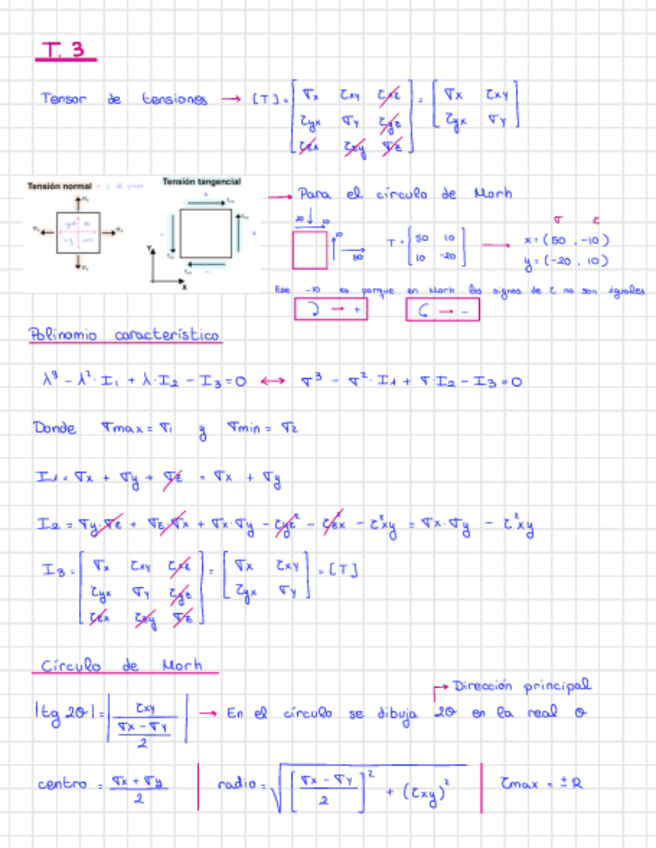 T. 3
Tensor de tensiones → [T] = [ σx τxy τxz ; τyx σy τyz ; τzx τzy σz ] = [ σx τxy ; τyx σy ]
Tensión normal → Tensión tangencial
→ Para el círculo de Morh
20 10
10
50
T = [ 50 10 ; 10 -20 ] → x = (50, -10)
σ τ
y = (-20, 10)
Y
X
Ese -10 es porque en Morh los signos de τ no son iguales
↷ → + ↶ → -
Polinomio característico
λ³ - λ²·I₁ + λ·I₂ - I₃ = 0 ↔ σ³ - σ²·I₁ + σ·I₂ - I₃ = 0
Donde σmax = σ₁ y σmin = σ₂
I₁ = σx + σy + σz = σx + σy
I₂ = σy·σz + σz·σx + σx·σy - τyz² - τzx² - τ²xy = σx·σy - τ²xy
I₃ = [ σx τxy τxz ; τyx σy τyz ; τzx τzy σz ] = [ σx τxy ; τyx σy ] = [T]
Círculo de Morh
→ Dirección principal
|tg 2θ| = | τxy / ((σx - σy) / 2) | → En el círculo se dibuja 2θ en la real θ
centro = (σx + σy) / 2 | radio = √( [ (σx - σy) / 2 ]² + (τxy)² ) | τmax = ± R